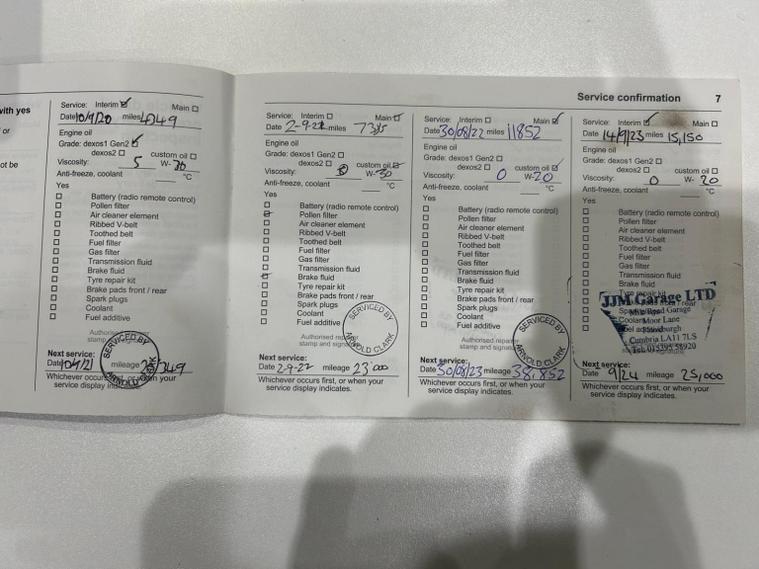 with yes
or
ot be
Service: Interim Main
Date 10/9/20 miles 4049
Engine oil
Grade: dexos1 Gen2
dexos2 custom oil
Viscosity: 5 W-30
Anti-freeze, coolant °C
Yes
Battery (radio remote control)
Pollen filter
Air cleaner element
Ribbed V-belt
Toothed belt
Fuel filter
Gas filter
Transmission fluid
Brake fluid
Tyre repair kit
Brake pads front / rear
Spark plugs
Coolant
Fuel additive
Authorised repairer
SERVICED BY
ARNOLD CLARK
Next service:
Date mileage
Whichever occurs first, or when your
service display indicates.
Service confirmation 7
Service: Interim Main
Date 2-9-21 miles 7385
Engine oil
Grade: dexos1 Gen2
dexos2 custom oil
Viscosity: W-30
Anti-freeze, coolant °C
Yes
Battery (radio remote control)
Pollen filter
Air cleaner element
Ribbed V-belt
Toothed belt
Fuel filter
Gas filter
Transmission fluid
Brake fluid
Tyre repair kit
Brake pads front / rear
Spark plugs
Coolant
Fuel additive
Authorised repairer
stamp and signature
SERVICED BY
ARNOLD CLARK
Next service:
Date 2-9-22 mileage 23000
Whichever occurs first, or when your
service display indicates.
Service: Interim Main
Date 30/08/22 miles 11852
Engine oil
Grade: dexos1 Gen2
dexos2 custom oil
Viscosity: 0 W-20
Anti-freeze, coolant °C
Yes
Battery (radio remote control)
Pollen filter
Air cleaner element
Ribbed V-belt
Toothed belt
Fuel filter
Gas filter
Transmission fluid
Brake fluid
Tyre repair kit
Brake pads front / rear
Spark plugs
Coolant
Fuel additive
Authorised repairer
stamp and signature
SERVICED BY
ARNOLD CLARK
Next service:
Date 30/08/23 mileage 38,852
Whichever occurs first, or when your
service display indicates.
Service: Interim Main
Date 14/9/23 miles 15,150
Engine oil
Grade: dexos1 Gen2
dexos2 custom oil
Viscosity: 0 W-20
Anti-freeze, coolant °C
Yes
Battery (radio remote control)
Pollen filter
Air cleaner element
Ribbed V-belt
Toothed belt
Fuel filter
Gas filter
Transmission fluid
Brake fluid
Tyre repair kit
JJM Garage LTD
Road Garage
Moor Lane
Cumbria LA11 7LS
Next service:
Date 9/24 mileage 25,000
Whichever occurs first, or when your
service display indicates.